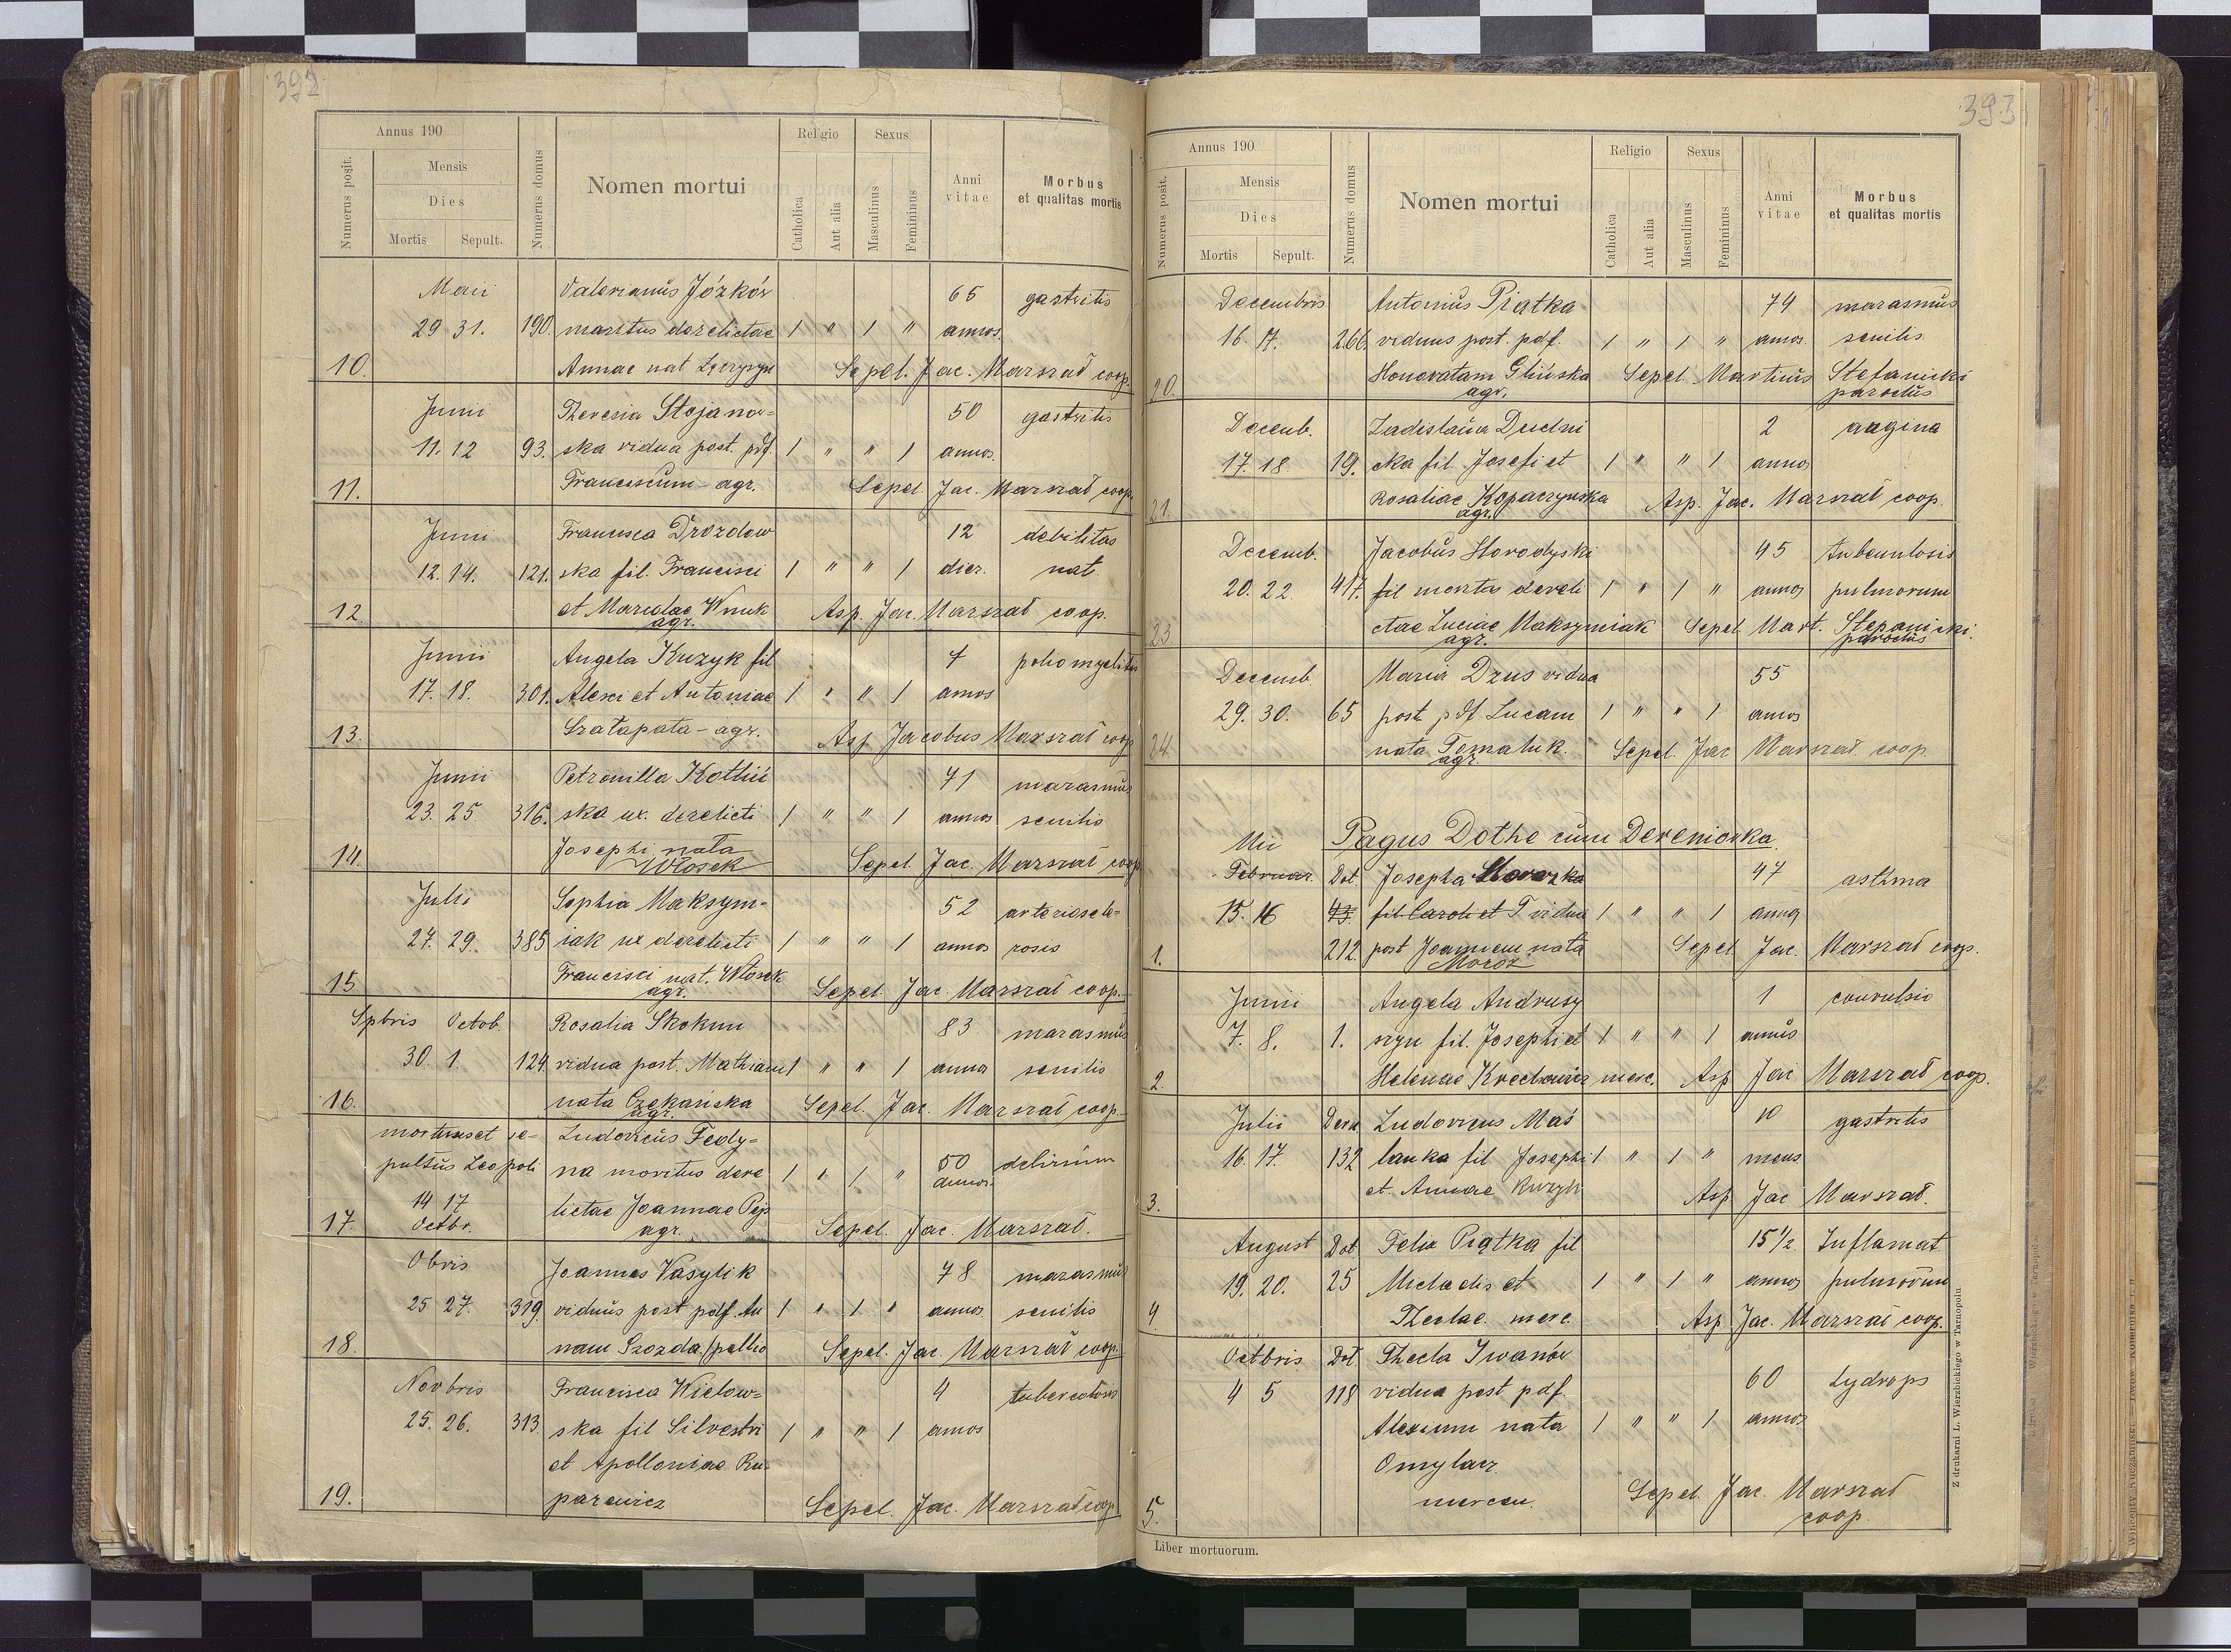 392
Annus 190
Numerus posit.
Mensis
Dies
Mortis
Sepult.
Numerus domus
Nomen mortui
Religio
Catholica
Aut alia
Sexus
Masculinus
Femininus
Anni vitae
Morbus
et qualitas mortis
Maii Valerianus Józków 65 gastritis
29 31. 190. maritus derelictae 1 " 1 " annos.
10. Annae nat Sepel. Jac. Marszał coop.
Junii Theresia Stojanow= 50 gastritis
11. 12 93. ska vidua post. pdf. 1 " " 1 annos.
11. Franciscum - agr. Sepel. Jac. Marszał coop.
Junii Francisca Drozdow 12 debilitas
12. 14. 121. ska fil. Francisci 1 " " 1 dier. nat.
12. et Mariae Wnuk Asp. Jac. Marszał coop.
agr.
Junii Angela Kuzyk fil 7 poliomyelitis
17. 18. 301. Alexii et Antoniae 1 " " 1 annos
13. Szatapata - agr. Asp Jacobus Marszał coop
Junii Petronilla Kotliń 71 marasmus
23. 25. 316. ska ux. derelicti 1 " " 1 annos senilis
14. Josephi nata Włosek Sepel Jac. Marszał coop
Julii Sophia Maksym- 52 arteriosele=
27. 29. 385 iak ux derelicti 1 " " 1 annos rosis
15 Francisci nat. Włosek Sepel. Jac. Marszał coop.
agr.
Spbris Octob. Rosalia Skokun 83 marasmus
30. 1. 124. vidua post. Mathiam 1 " " 1 annos senilis
16. nata Czekańska Sepel. Jac. Marszał coop.
agr.
mortuus et se- Ludovicus Fedy= 50 delirium
pultus Leopoli na maritus dere 1 " 1 " annos.
14 17 lictae Joannae Pejs
17. Octbr. agr. Sepel. Jac. Marszał.
Obris Joannes Vasylik 78 marasmus
25 27. 319. viduus post pdf. An 1 " 1 " annos senilis
18. nam Szozda / pellio Sepel. Jac. Marszał coop.
Novbris Francisca Wielow= 4 tuberculosis
25. 26. 313. ska fil Silvestri 1 " " 1 annos
et Apolloniae Ru-
19. parowicz Sepel. Jac. Marszał coop
393
Annus 190
Numerus posit.
Mensis
Dies
Mortis
Sepult.
Numerus domus
Nomen mortui
Religio
Catholica
Aut alia
Sexus
Masculinus
Femininus
Anni vitae
Morbus
et qualitas mortis
Decembris Antonius Piątka 74 marasmus
16. 17. 266. viduus post. pdf. 1 " 1 " annos. senilis
20. Honoratam Glińska Sepel. Martinus Stefanicki
agr. parochus
Decemb. Ladislaua Dudni 2 angina
17. 18. 19. cka fil. Josefi et 1 " " 1 annos
21. Rosaliae Kopaczynska Asp. Jac. Marszał coop.
agr.
Decemb. Jacobus Horodyski 45 tuberculosis
20. 22. 417. fil maritus dereli 1 " 1 " annos pulmorum
23 ctae Luciae Maksymiak Sepel Mart. Stefanicki
agr. parochus
Decemb. Maria Dzus vidua 55
29. 30. 65 post pdf Lucam 1 " " 1 annos
24. nata Tomaluk. Sepel. Jac Marszał coop.
agr.
Pagus Dołhe cum Dereniowka
Mii
Februar. Doł. Josepha 47 asthma
15. 16 43. fil Caroli et T vidua 1 " " 1 annos
1. 212. post Joannem nata Sepel Jac. Marszał coop.
Moroz
Junii Angela Andrusy 1 convulsio
7. 8. 1. szyn fil. Josephi et 1 " " 1 annus
2. Helenae Krechowicz merc. Asp Jac Marszał coop.
Julii Dere Ludovicus Maś 10 gastritis
16. 17. 132 lanka fil Josephi 1 " 1 " mens
3. et. Annae Kuzyk Asp Jac Marszał.
August Doł. Felix Piątka fil 15 1/2 Inflamat
19. 20. 25 Michaelis et 1 " 1 " annos pulmorum
4. Theclae. merc. Asp. Jac. Marszał coop.
Octbris Doł. Thecla Iwanów 60 hydrops
4 5 118 vidua post pdf.
Alexium nata 1 " " 1 annos
Omylacz
5. mercen. Sepel. Jac. Marszał
coop.
Liber mortuorum.
Z drukarni L. Wierzbickiego w Tarnopolu